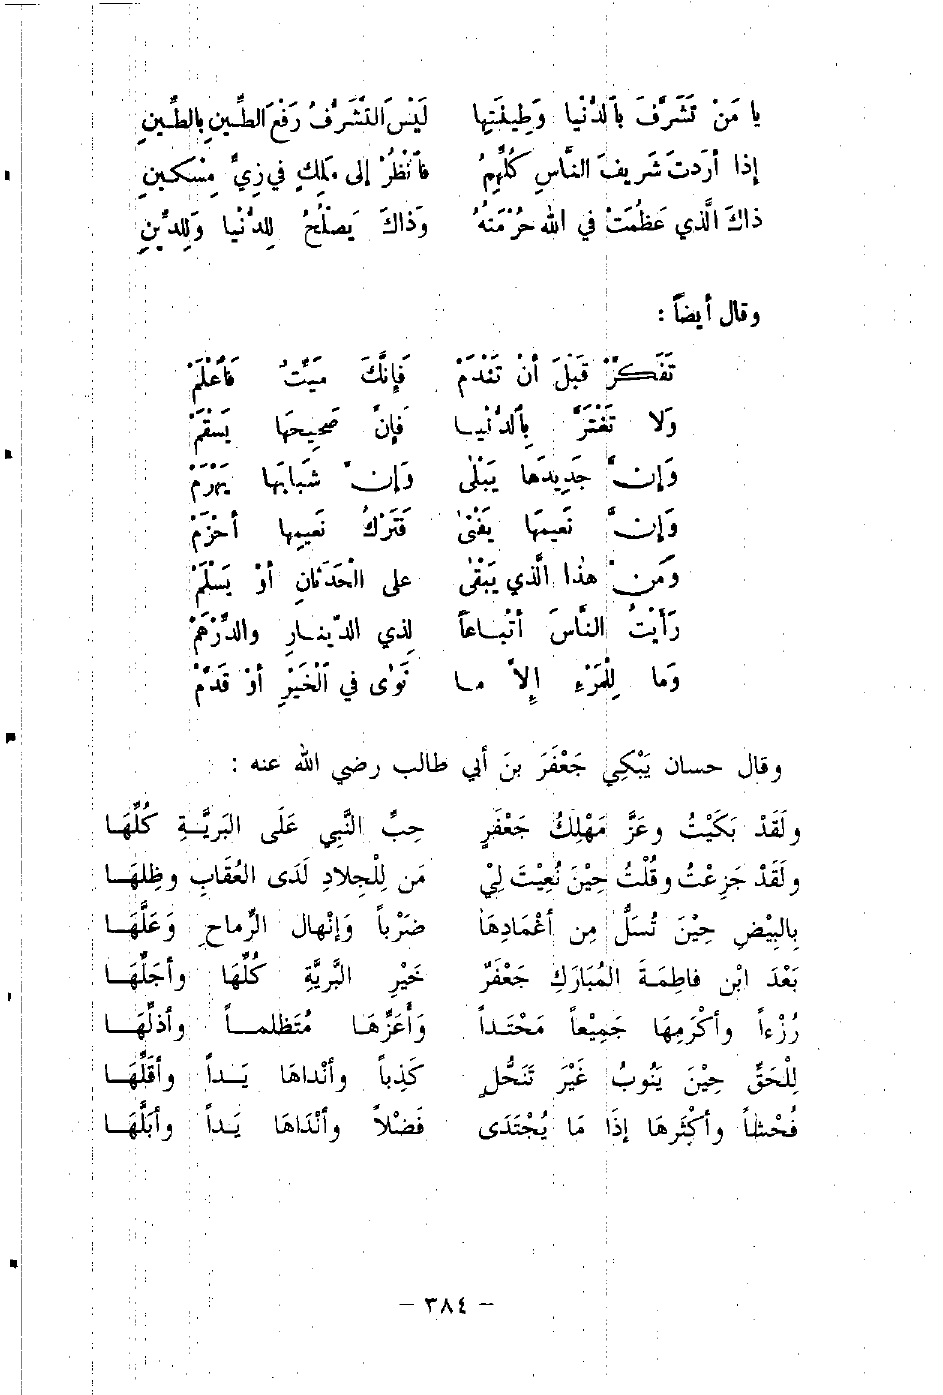 يا مَنْ تَشَرَّفَ بِالدُّنْيا وَطِينَتِها لَيْسَ التَّشَرُّفُ رَفْعَ الطِّينِ بِالطِّينِ
إذا أرَدتَ شَريفَ النَّاسِ كُلِّهِمُ فَانْظُرْ إلى مَلِكٍ في زِيِّ مِسْكينِ
ذاكَ الَّذي عَظُمَتْ في الله حُرْمَتُهُ وَذاكَ يَصْلُحُ لِلدُّنْيا وَلِلدِّينِ
وقال أيضاً :
تَفَكَّرْ قَبْلَ أنْ تَنْدَمْ فَإنَّكَ مَيِّتٌ فَاعْلَمْ
وَلا تَغْتَرَّ بِالدُّنْيا فَإنَّ صَحِيحَها يَسْقَمْ
وَإنَّ جَدِيدَها يَبْلى وَإنَّ شَبَابَها يَهْرَمْ
وَإنَّ نَعيمَها يَفْنىٰ فَتَرْكُ نَعيمِها أحْزَمْ
وَمَن هذا الَّذي يَبْقىٰ على الْحَدَثانِ أوْ يَسْلَمْ
رَأيْتُ النَّاسَ أتْباعاً لِذي الدّينارِ والدِّرْهَمْ
وَما لِلْمَرْءِ إلاَّ ما نَوٰى في الْخَيْرِ أوْ قَدَّمْ
وقال حسان يَبْكِي جَعْفَرَ بنَ أبي طالب رضي الله عنه :
ولَقَدْ بَكَيْتُ وعَزَّ مَهْلِكُ جَعْفَرٍ حِبِّ النَّبِي عَلَى البَرِيَّةِ كُلِّهَا
ولَقَدْ جَزِعْتُ وقُلْتُ حِيْنَ نُعِيْتَ لِيْ مَن لِلْجِلادِ لَدَى العُقَابِ وظِلِهَا
بِالبِيْضِ حِيْنَ تُسَلُّ مِن أغْمَادِهَا ضَرْباً وَإنْهالِ الرِّماحِ وَعَلِّهَا
بَعْدَ ابْن فاطِمَةَ المُبَارَكِ جَعْفَرٌ خَيْرِ البَّرِيَّةِ كُلِّهَا وأجَلِّهَا
رُزْءاً وأكْرَمِهَا جَمِيْعاً مَحْتَداً وَأَعَزِّهَا مُتَظلماً وأذلِّهَا
لِلْحَقِّ حِيْنَ يَنُوبُ غَيْرَ تَنَحُّلٍ كَذِباً وأنْداهَا يَداً وأقَلِّهَا
فُحْشاً وأكْثَرِهَا إذَا مَا يُجْتَدَى فَضْلاً وأنْدَاهَا يَداً وأبَلَّهَا
– ٣٨٤ –